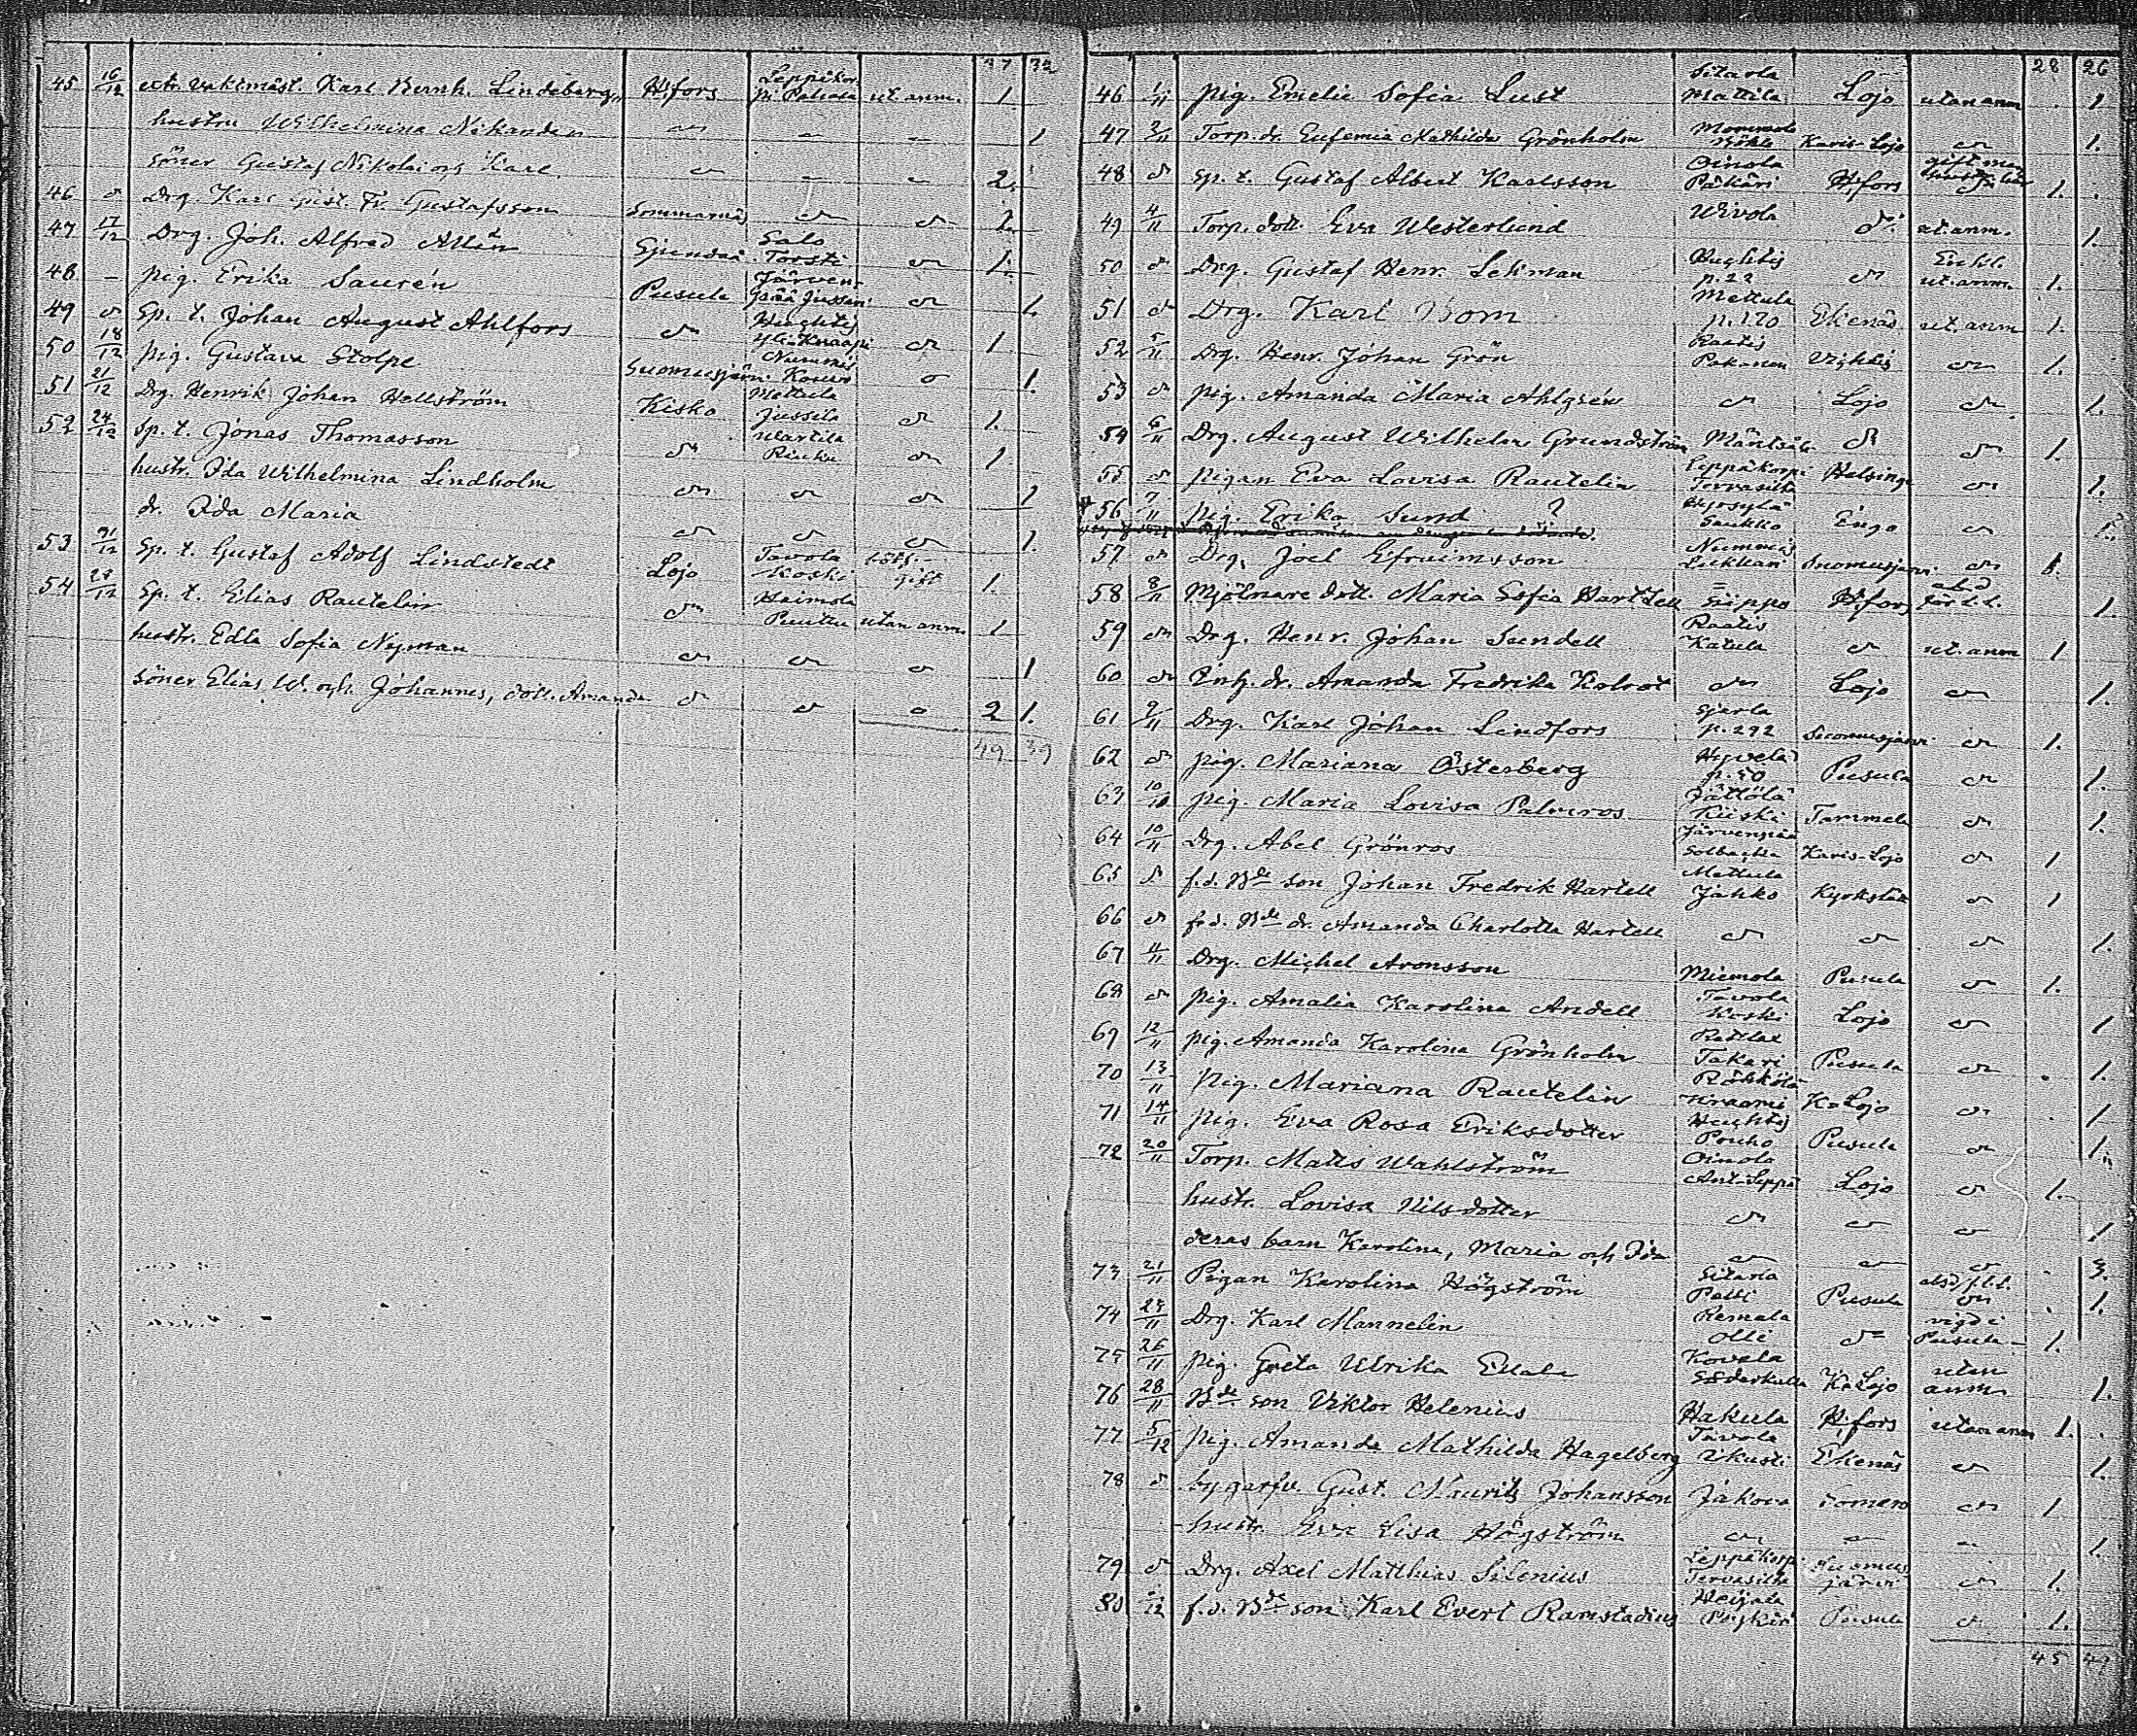 37 32
45 16/12 extr. vaktmäst. Karl Bernh. Lindeberg H:fors Leppäkor. pi Pahala ut. anm. 1
hustru Wilhelmina Nikander 1
söner Gustaf Nikolai och Karl 2.
46 Drg. Karl Gust. Fr. Gustafsson Sommarnäs 1.
47 17/12 Drg. Joh. Alfred Allén Sjundeå Salo Torsti 1.
48 – pig. Erika Saurén Pusula Järven- pää Jussari 1.
49 Sp. t. Johan August Ahlfors Huhtis Yli-Knaapi 1
50 18/12 pig. Gustava Stolpe Suomusjärvi Nummis Kouvo 1.
51 21/12 Drg. Henrik Johan Hellström Kisko Mettula Jussila 1.
52 24/12 Sp. t. Jonas Thomasson Wartila 1
hustr. Ida Wilhelmina Lindholm 1
dr. Ida Maria 1.
53 21/12 Sp. t. Gustaf Adolf Lindstedt Lojo Tavola Koski gift 1.
54 28/12 Sp. t. Elias Rautelin Heimola Puuttu utan anm. 1
hustr. Edla Sofia Nyman 1
söner Elias W. och Johannes, dott. Amanda 2 1.
49 39
28 26
46 1/11 pig. Emelie Sofia Lust Sitarla Mattila Lojo utan anm 1
47 2/11 Torp. dr. Eufemia Mathilda Grönholm Mommola Karis-Lojo 1.
48 Sp. t. Gustaf Albert Karlsson Oinola Päkäri H:fors gift men 1.
49 4/11 Torp. dott. Eva Westerlund Wivola ut. anm. 1.
50 Drg. Gustaf Henr. Lehman Huhtis p. 22 Enkl. ut. anm. 1.
51 Drg. Karl Bom Mettula p. 170 Ekenäs ut. anm 1.
52 5/11 Drg. Henr. Johan Grön Raatis Pakanen Vichtis 1.
53 pig. Amanda Maria Ahlgrén Lojo 1.
54 6/11 Drg. August Wilhelm Grundström Mäntsälä 1.
55 pigan Eva Lovisa Rautelin Leppäkorpi Tervasilta Helsinge 1.
56 7/11 pig. Erika Sund ? Hyrsylä Saukko Ingo
57 Drg. Joel Efraimsson Nummis Liukkari Suomusjärvi 1.
58 8/11 Mjölnare dott. Maria Sofia Hartzell Siippo H:fors 1.
59 Drg. Henr. Johan Sundell Raatis Katula ut. anm 1
60 Inh. dr. Amanda Fredrika Kolrot Lojo 1.
61 9/11 Drg. Karl Johan Lindfors Gjerla p. 292 Suomusjärvi 1.
62 pig. Mariana Österberg Hyvelä p. 50 Pusula 1.
63 10/11 pig. Maria Lovisa Palmros Jättölä Kiiski Tammela 1.
64 10/11 Drg. Abel Grönros Järvenpää Solbacka Karis-Lojo 1
65 f.d. Bde son Johan Fredrik Hartell Mettula Jahko Kyrkslätt 1
66 f.d. Bde dr. Amanda Charlotta Hartell 1.
67 11/11 Drg. Michel Aronsson Miemola Pusula 1.
68 pig. Amalia Karolina Andell Tavola Koski Lojo 1
69 12/11 pig. Amanda Karolina Grönholm Takari Pusula 1.
70 13/11 pig. Mariana Rautelin Röhkölä Kraami K-Lojo 1
71 14/11 pig. Eva Rosa Eriksdotter Huhtis Pouho Pusula 1.
72 20/11 Torp. Matts Wahlström Oinola Ant-Seppä Lojo 1.
hustr. Lovisa Nilsdotter 1
deras barn Karolina, Maria och Ida 3.
73 21/11 Pigan Karolina Högström Sitarla Patti Pusula 1.
74 23/11 Drg. Karl Mannelin Remala Olli vigd i Pusula 1.
75 26/11 pig. Greta Ulrika Kovela Söderkulla K-Lojo utan anm. 1.
76 28/11 Bde son Viktor Helenius Hakula H:fors utan anm 1.
77 5/12 pig. Amanda Mathilda Hagelberg Tavola Ekenäs 1.
78 Gust. Maurits Johansson Jakova Somero 1
hustr. Eva Lisa Högström 1.
79 Drg. Axel Matthias Silenius Leppäkorpi Tervasilta Suomus järvi 1.
80 f.d. Bde son Karl Evert Ramstadius Heijala Pusula 1.
45 47